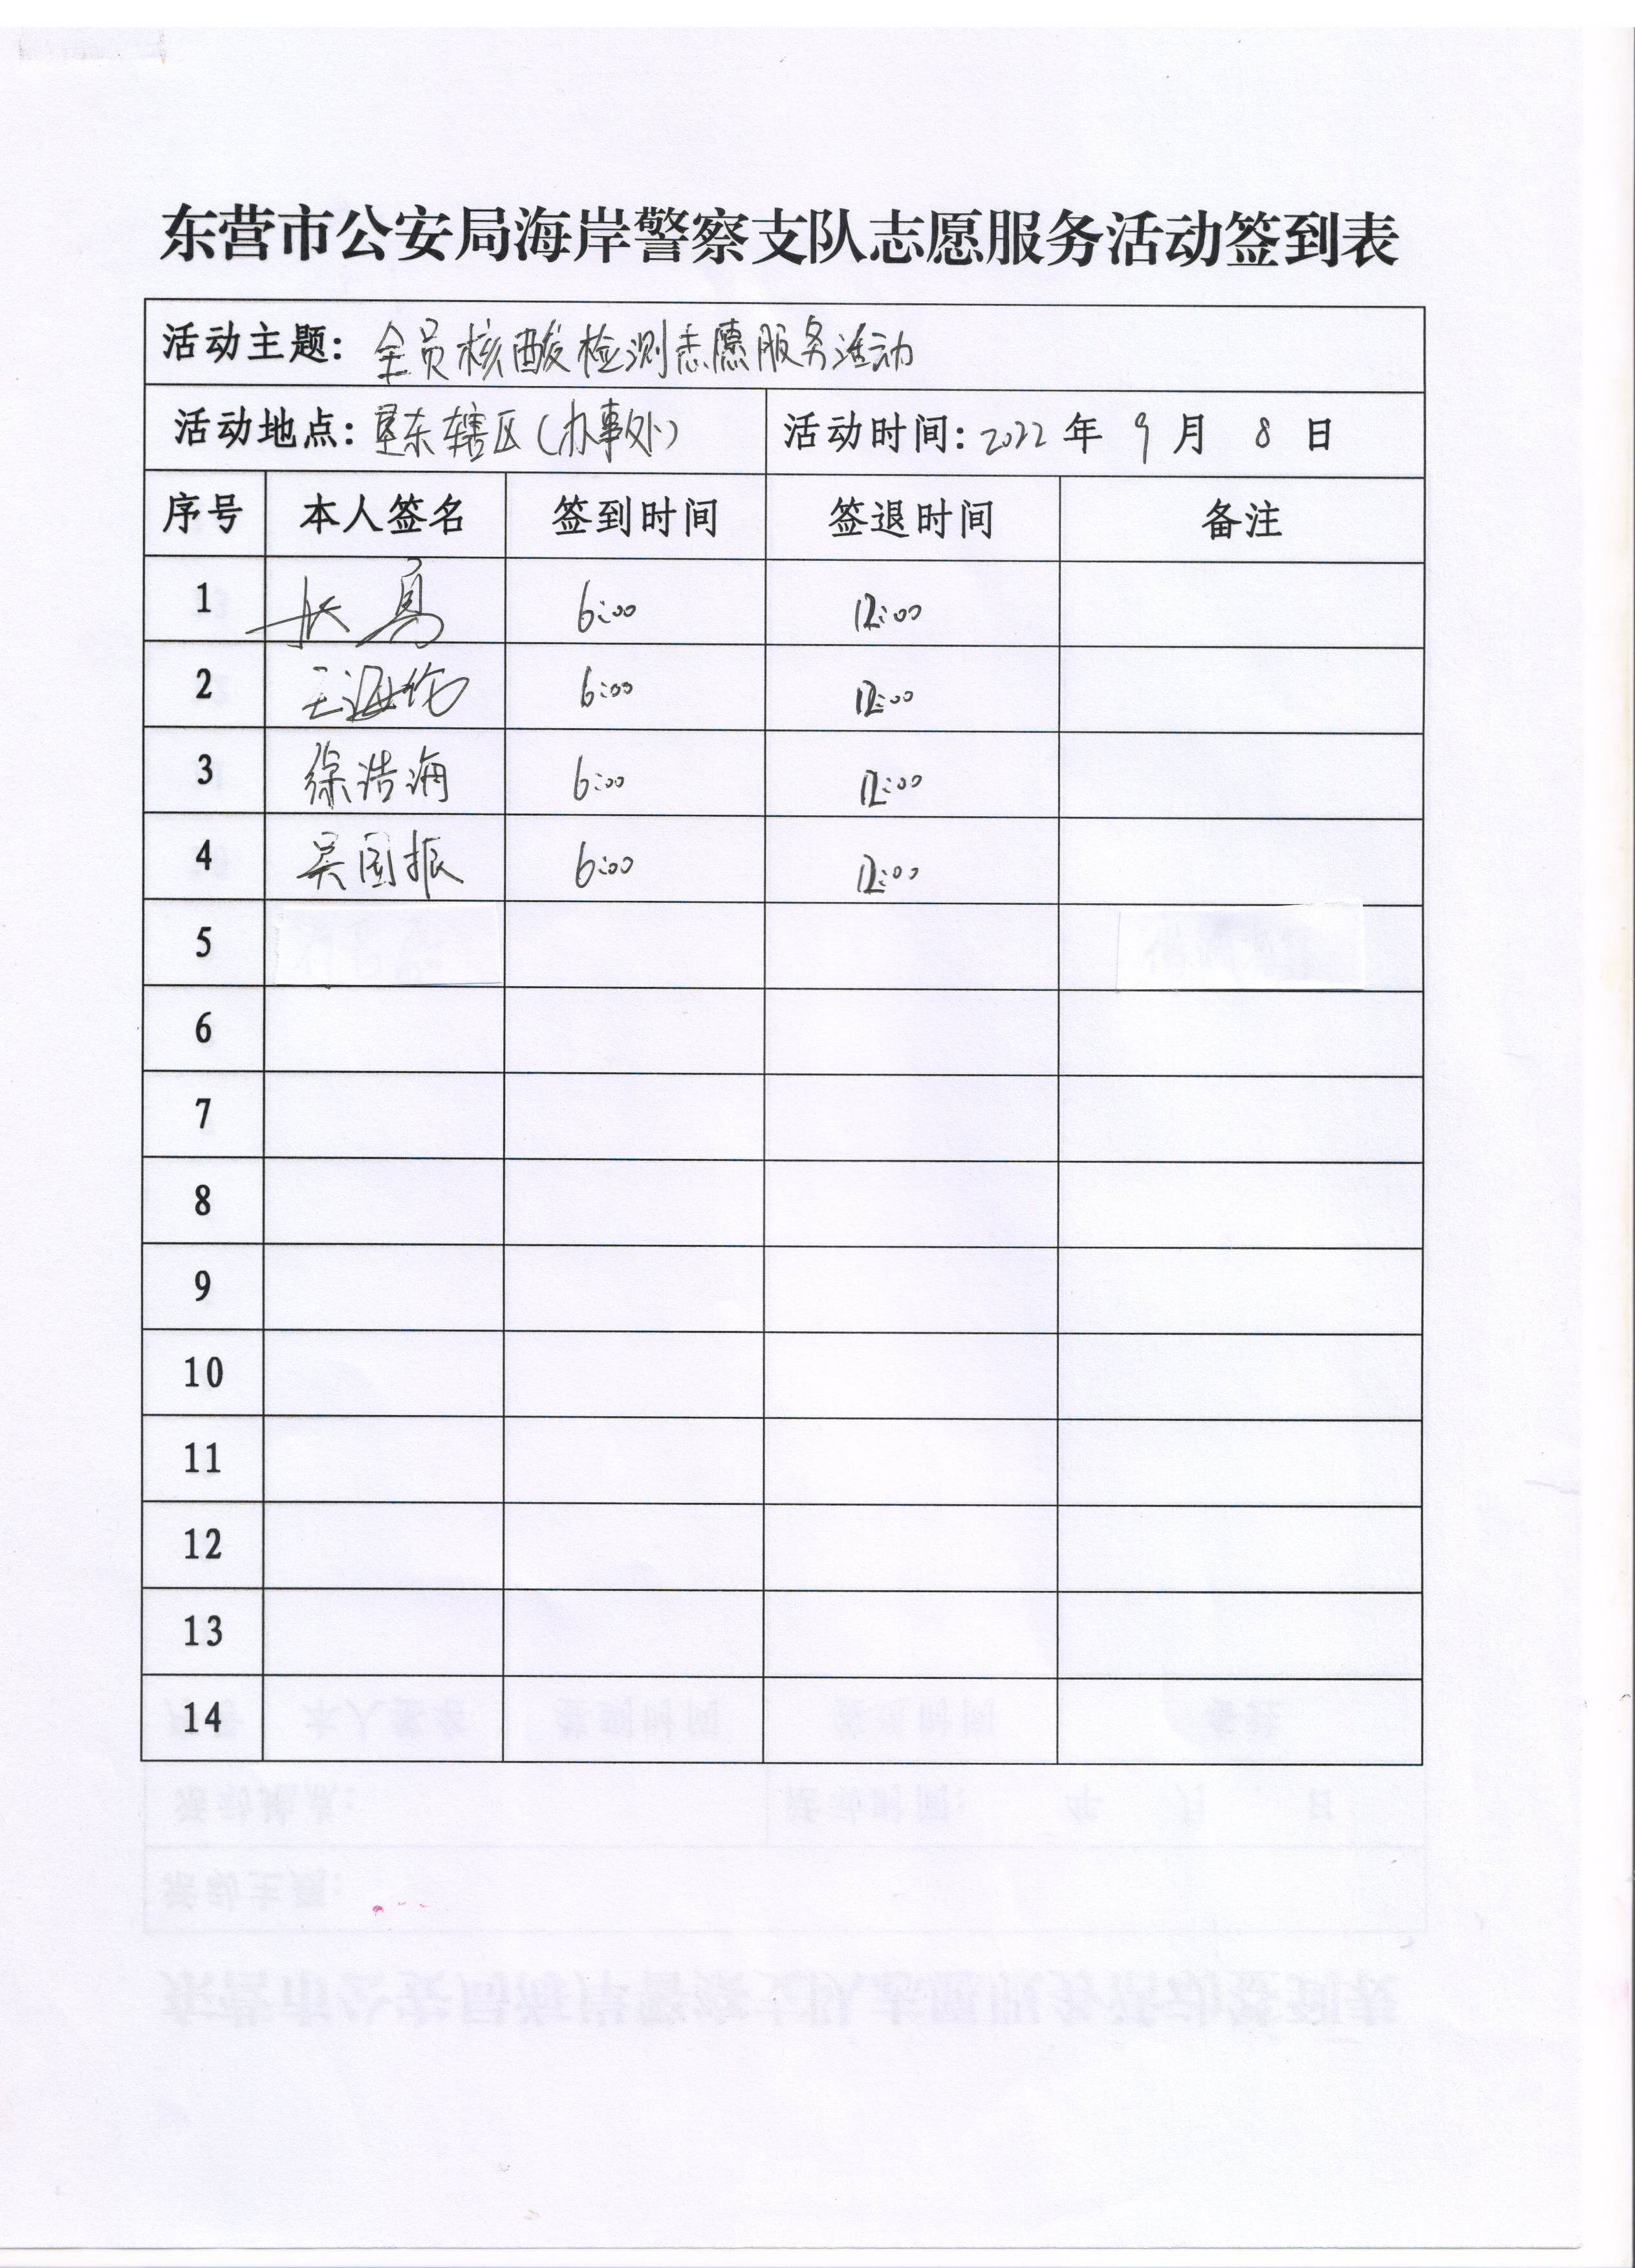 东营市公安局海岸警察支队志愿服务活动签到表
活动主题: 全员核酸检测志愿服务活动
活动地点: 垦东辖区(办事处) 活动时间: 2022 年 9 月 8 日
序号 本人签名 签到时间 签退时间 备注
1 6:00 12:00
2 王海 6:00 12:00
3 徐浩海 6:00 12:00
4 吴国振 6:00 12:00
5
6
7
8
9
10
11
12
13
14